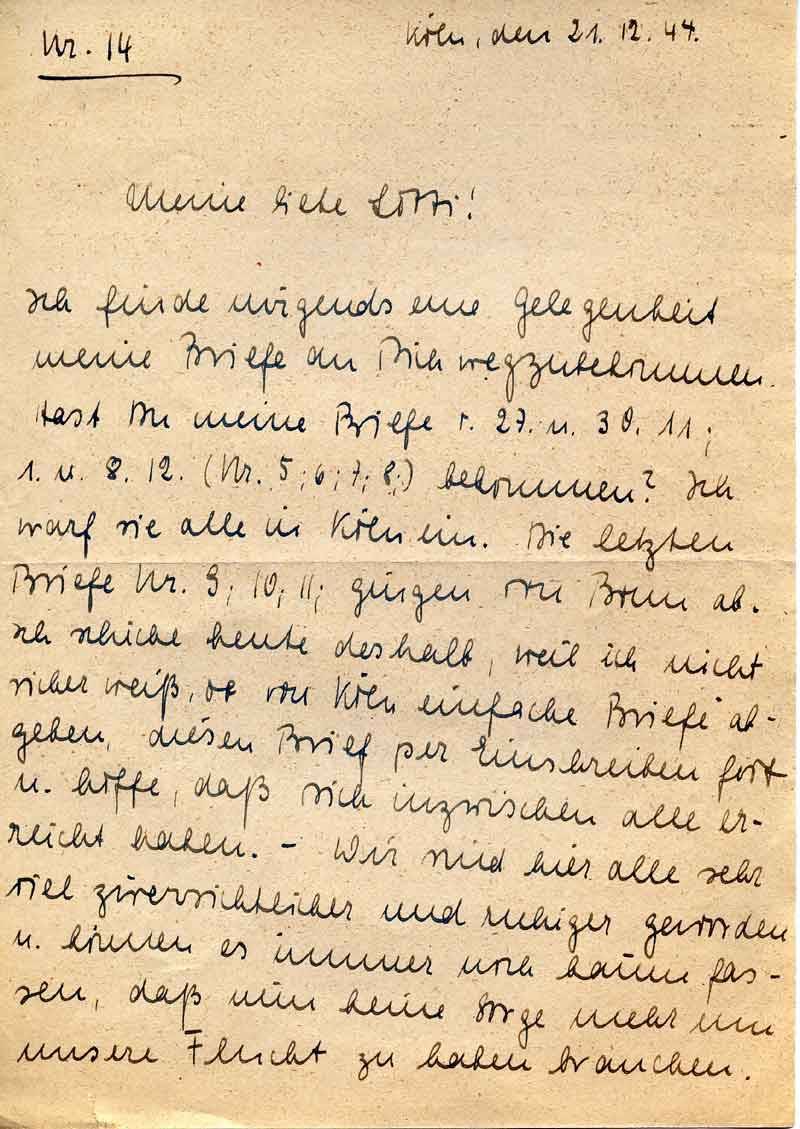 Nr. 14
Köln, den 21. 12. 44.
Meine liebe Lotti!
Ich finde nirgends eine Gelegenheit
meine Briefe an Dich wegzubekommen.
Hast Du meine Briefe v. 27. u. 30. 11;
1. u. 8. 12. (Nr. 5; 6; 7; 8;) bekommen? Ich
warf sie alle in Köln ein. Die letzten
Briefe Nr. 9; 10; 11; gingen von Bonn ab.
Ich schicke heute deshalb, weil ich nicht
sicher weiß, ob von Köln einfache Briefe ab-
gehen, diesen Brief per Einschreiben fort
u. hoffe, daß Dich inzwischen alle er-
reicht haben. - Wir sind hier alle sehr
viel zuversichtlicher und ruhiger geworden
u. können es immer noch kaum fas-
sen, daß wir keine Sorge mehr um
unsere Flucht zu haben brauchen.